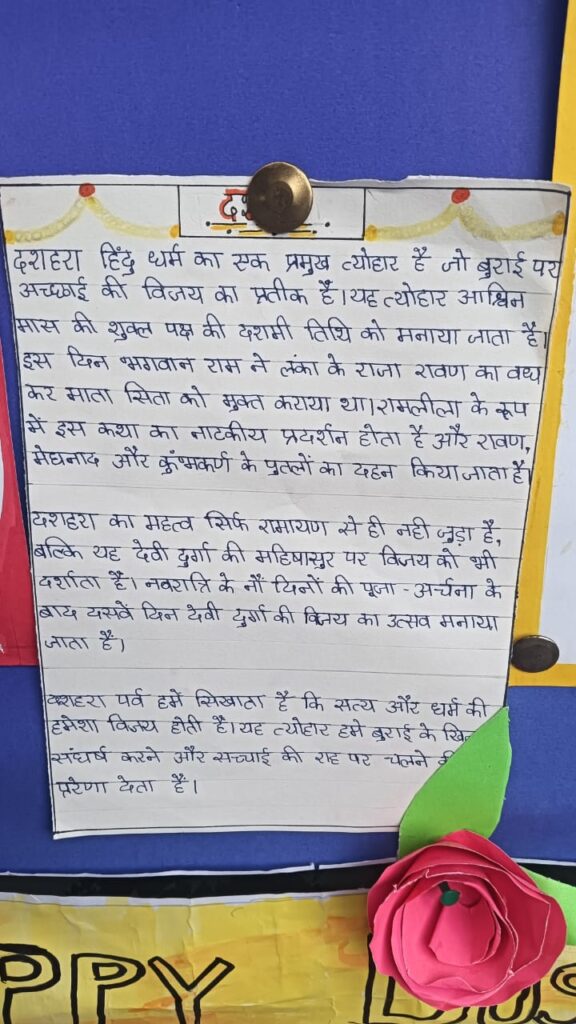 दशहरा हिंदु धर्म का एक प्रमुख त्योहार है जो बुराई पर
अच्छाई की विजय का प्रतीक है। यह त्योहार आश्विन
मास की शुक्ल पक्ष की दशमी तिथि को मनाया जाता है।
इस दिन भगवान राम ने लंका के राजा रावण का वध
कर माता सिता को मुक्त कराया था। रामलीला के रूप
में इस कथा का नाटकीय प्रदर्शन होता है और रावण,
मेघनाद और कुंभकर्ण के पुतलों का दहन किया जाता है।
दशहरा का महत्व सिर्फ रामायण से ही नही जुड़ा है,
बल्कि यह देवी दुर्गा की महिषासुर पर विजय को भी
दर्शाता है। नवरात्रि के नौं दिनों की पूजा - अर्चना के
बाद दसवें दिन देवी दुर्गा की विजय का उत्सव मनाया
जाता है।
दशहरा पर्व हमें सिखाता है कि सत्य और धर्म की
हमेशा विजय होती है। यह त्योहार हमे बुराई के
संघर्ष करने और सच्चाई की राह पर चलने
प्ररेणा देता हैं।
PPY DUS